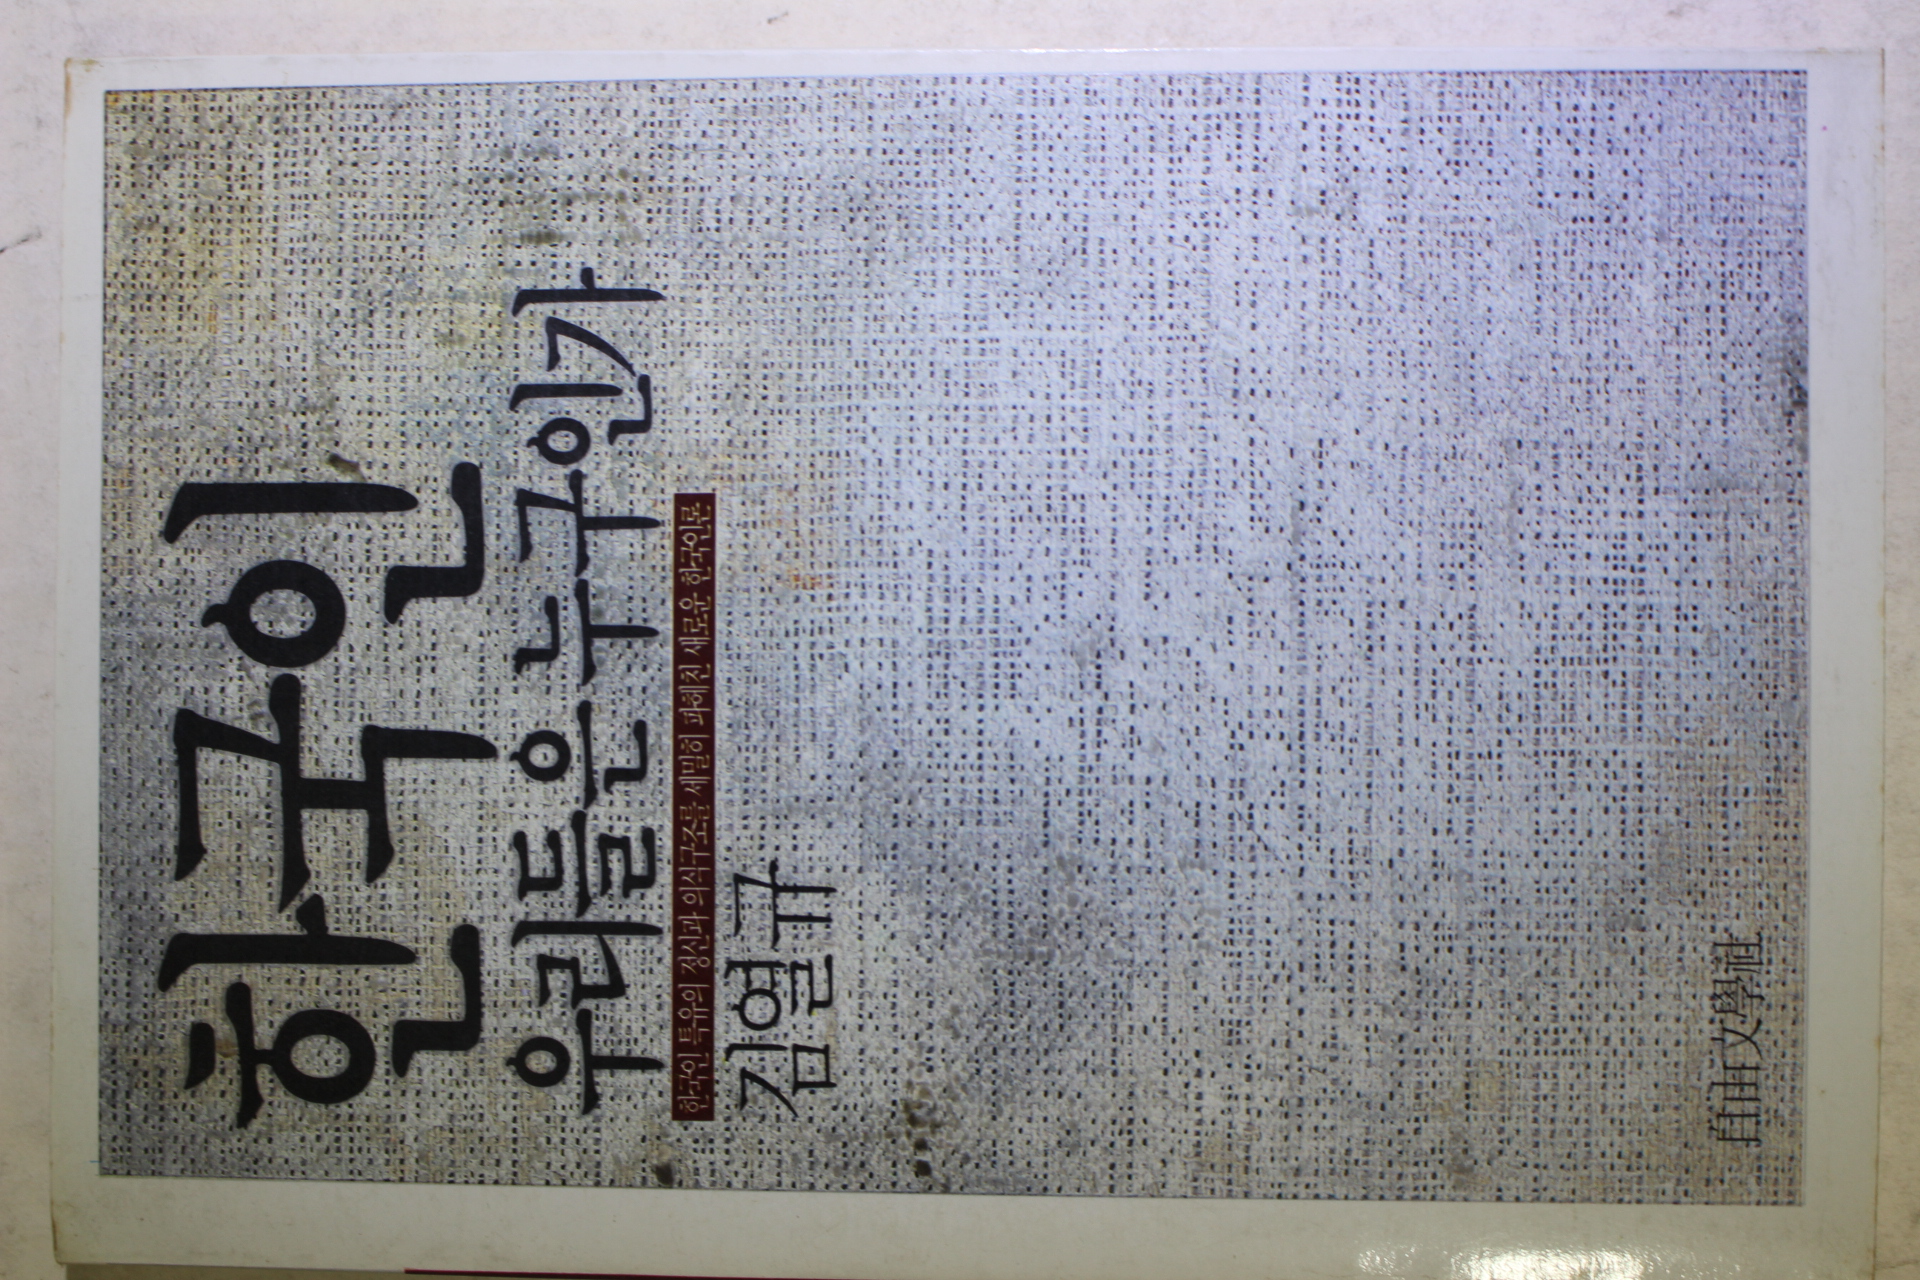 한국인
우리들은 누구인가
한국인 특유의 정신과 의식구조를 세밀히 파헤친 새로운 한국인론
김열규
自由文學社